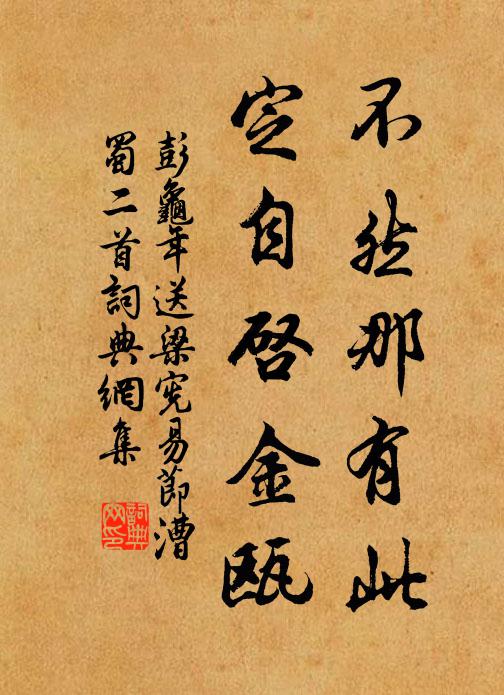 不然那有此
定自啓金甌
彭龜年送梁宪易節漕
蜀二首詞典網集
詞典
网印